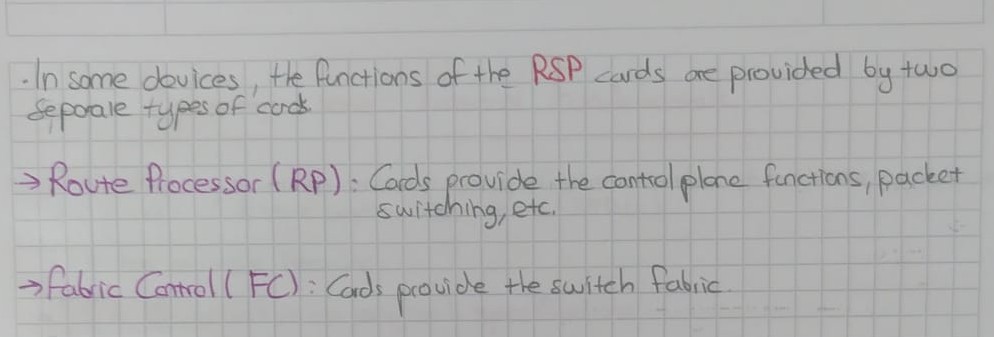 .In some devices, the functions of the RSP cards are provided by two
separate types of cards.
→ Route Processor (RP): Cards provide the control plane functions, packet
switching, etc.
→ Fabric Control (FC): Cards provide the switch fabric.